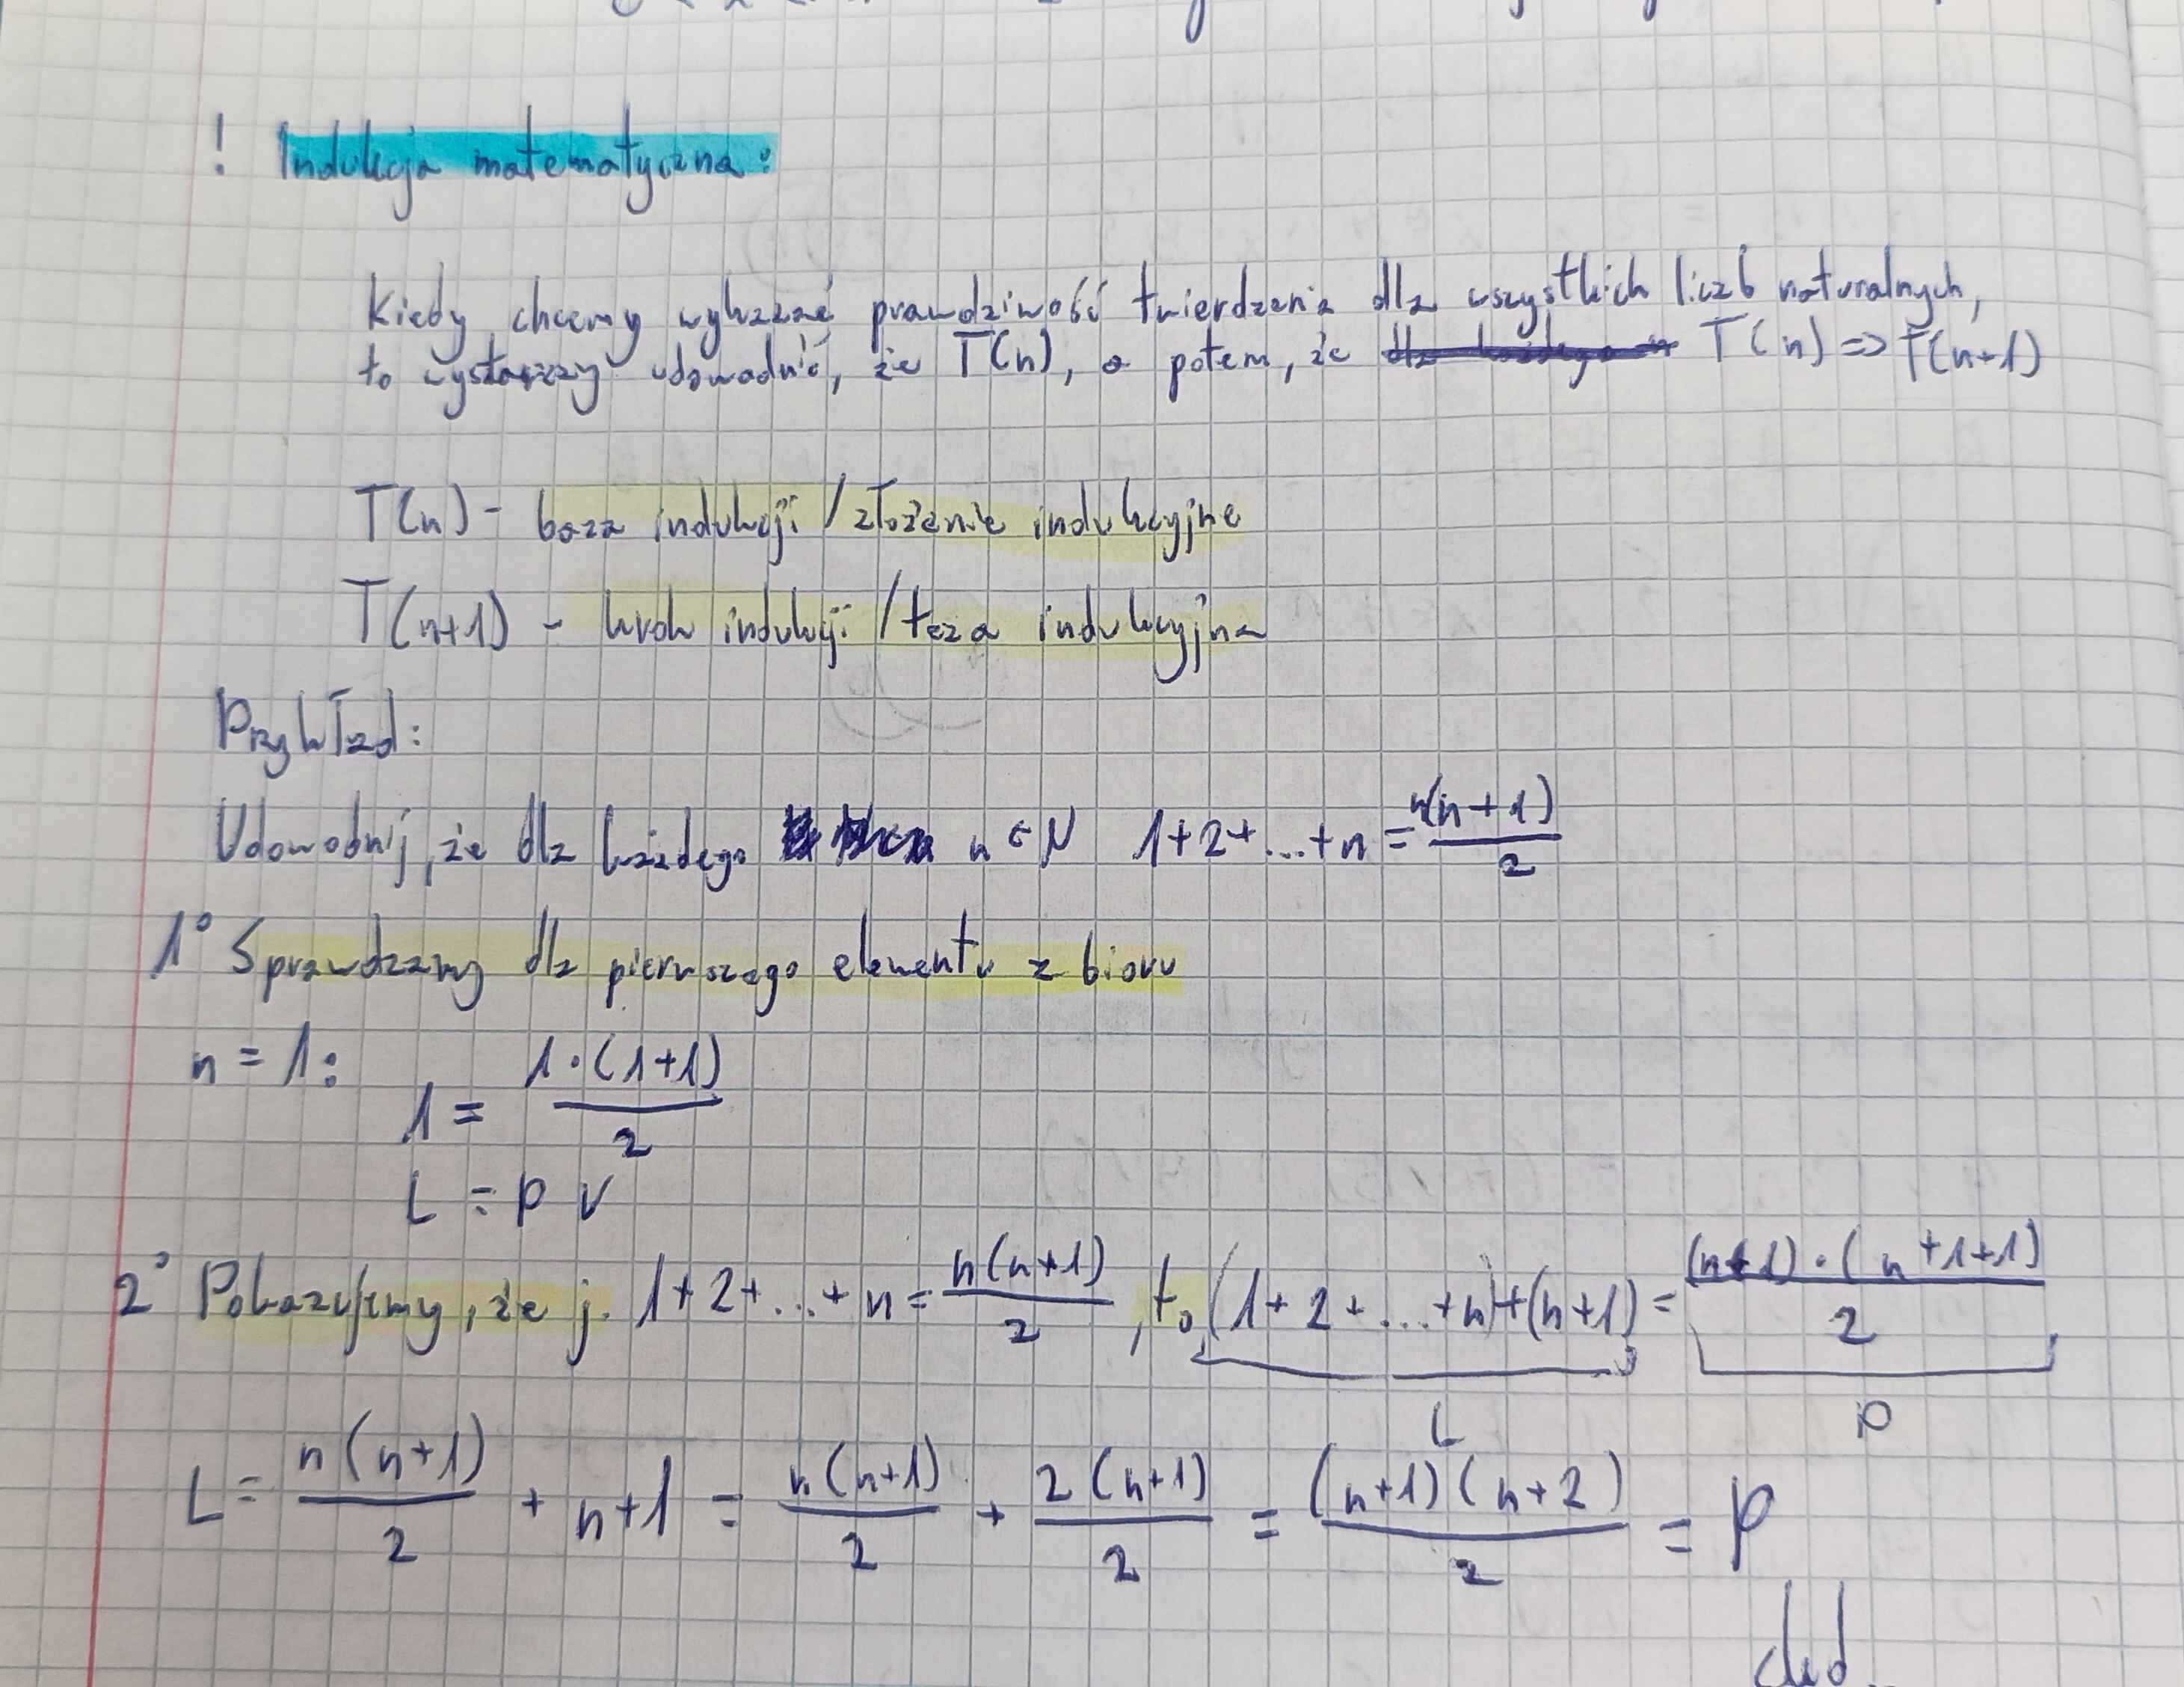 ! Indukcja matematyczna:
Kiedy chcemy wykazać prawdziwość twierdzenia dla wszystkich liczb naturalnych,
to wystarczy udowodnić, że T(n), a potem, że dla każdego n T(n) => T(n+1)
T(n) - baza indukcji / złożenie indukcyjne
T(n+1) - krok indukcji / teza indukcyjna
Przykład:
Udowodnij, że dla każdego n ∈ N 1+2+...+n = n(n+1)/2
1° Sprawdzamy dla pierwszego elementu z bioru
n = 1: 1 = 1·(1+1)/2
L = P V
2° Pokazujemy, że j. 1+2+...+n = n(n+1)/2, to (1+2+...+n)+(n+1) = (n+1)·(n+1+1)/2
L P
L = n(n+1)/2 + n+1 = n(n+1)/2 + 2(n+1)/2 = (n+1)(n+2)/2 = P
ckd.